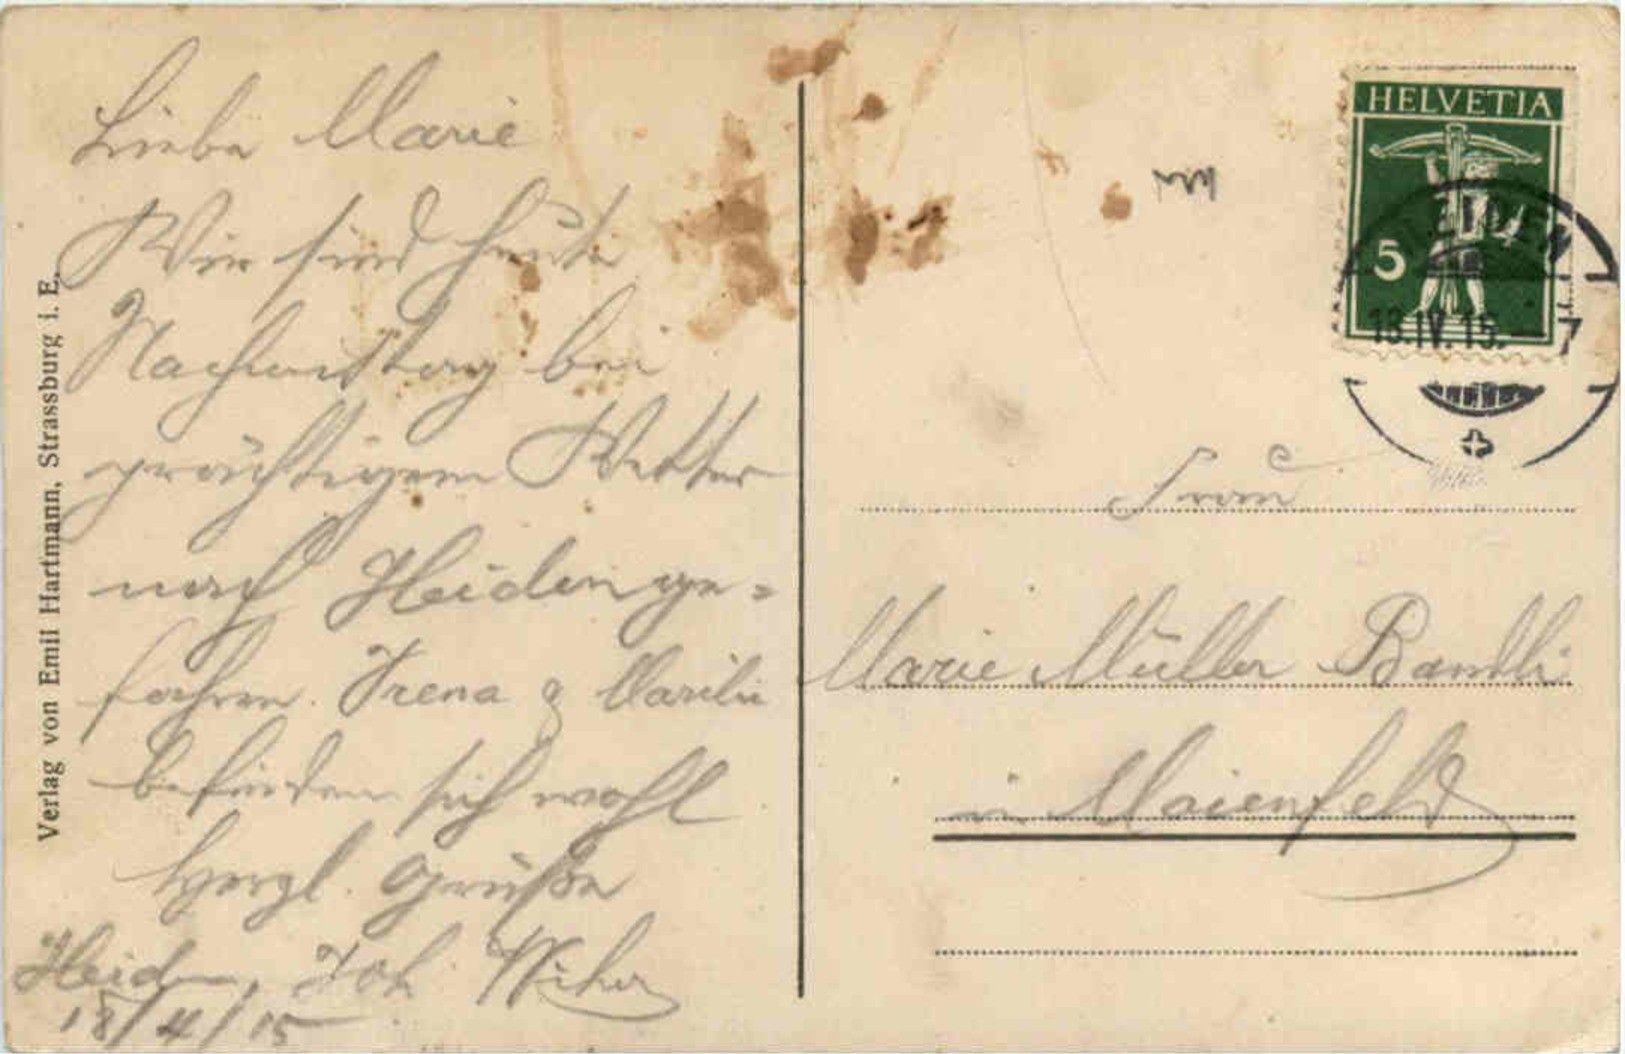 Liebe Marie
Wir sind heute
Nachmittag bei
prächtigem Wetter
nach Heiden ge=
fahren. Irena & Marili
befinden sich wohl
Herzl. Grüße
Heiden, Joh
18/4/15
Verlag von Emil Hartmann, Strassburg i. E.
HELVETIA
5
HEIDEN
IV.15.
Frau
Marie Müller Bandli
in Maienfeld